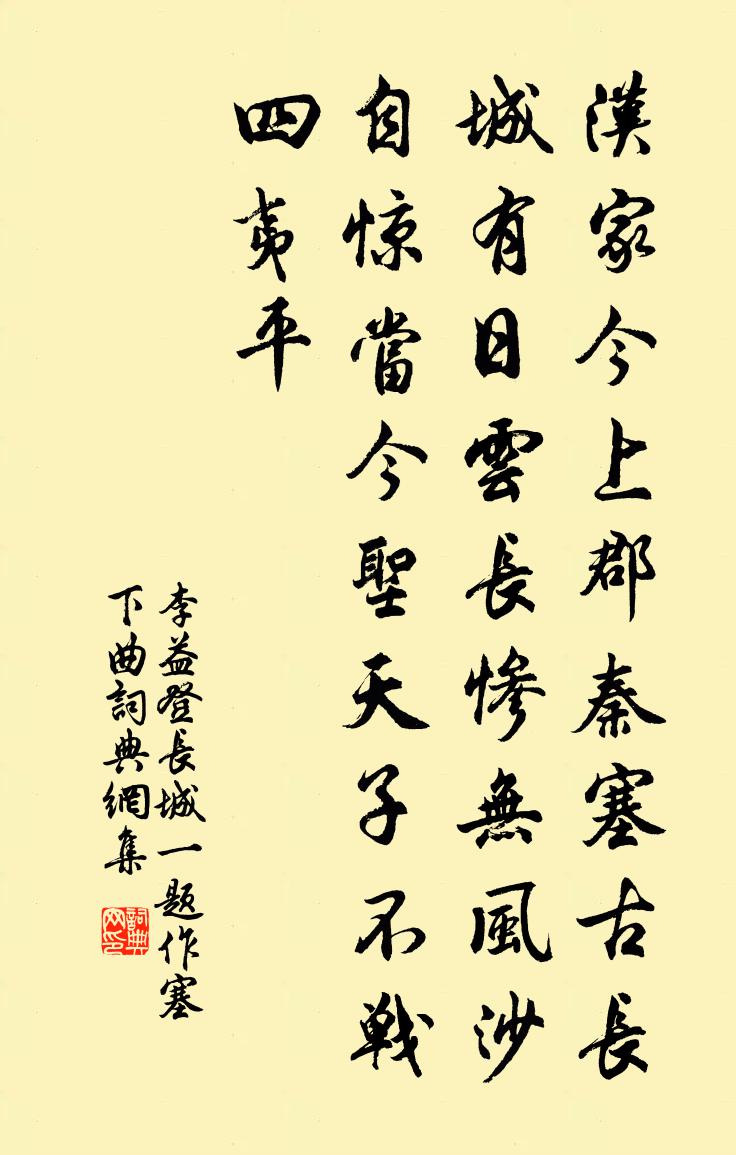 漢家今上郡秦塞古長
城有日雲長慘無風沙
自惊當今聖天子不戦
四夷平
李益登長城一题作塞
下曲詞典網集
詞典
网印